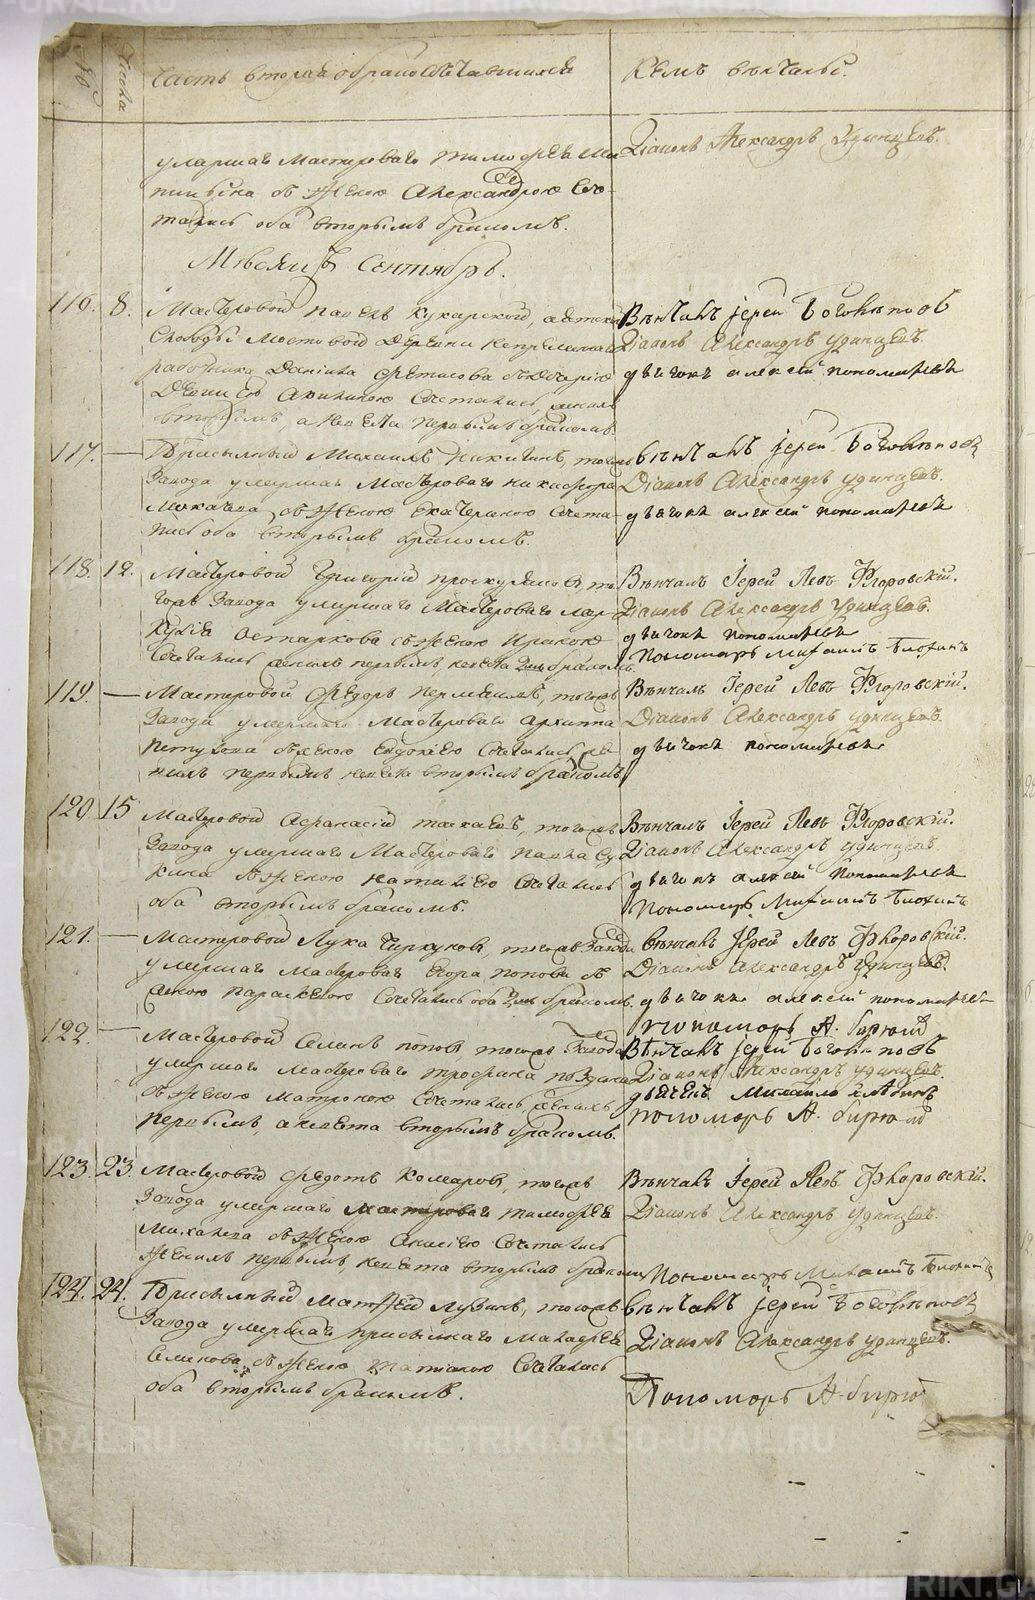 №
Числа
Часть вторая о бракосочетавшихся
Кемъ венчаны.
умершаго мастероваго Тимофея
съ женою Александрою соче-
тались оба вторымъ бракомъ.
Діаконъ Александръ Удинцевъ.
Месяцъ Сентябрь.
116. 8. Мастеровой Павелъ Кукарской,
слободы деревни
работника Данила Фетисова съ дочерію
девицею Акилиною сочетались, женихъ
вторымъ, а невеста первымъ бракомъ.
Венчалъ іерей Боголеповъ
Діаконъ Александръ Удинцевъ.
дьячокъ алексей пономаревъ
117. — Присыльный Михаилъ Никитинъ, тогожъ
Завода умершаго мастероваго Никифора
съ женою Екатериною сочета-
лись оба вторымъ бракомъ.
венчалъ іерей Боголеповъ
Діаконъ Александръ Удинцевъ.
дьячокъ алексей пономаревъ
118. 12. Мастеровой Григорій Проскуряковъ, то-
гожъ Завода умершаго мастероваго
съ женою Ириною
сочетались женихъ первымъ невеста бракомъ.
Венчалъ Іерей Левъ Флоровскій.
Діаконъ Александръ Удинцевъ.
дьячокъ пономаревъ
Пономарь Михаилъ Блохинъ
119. — Мастеровой Федоръ Пермяковъ, тогожъ
Завода умершаго мастероваго Архипа
Петухова съ женою Евдокіею сочетались же-
нихъ первымъ невеста вторымъ бракомъ
Венчалъ Іерей Левъ Флоровскій.
Діаконъ Александръ Удинцевъ.
дьячокъ пономаревъ
120 15 Мастеровой Афанасій тогожъ
Завода умершаго мастероваго Павла
съ женою Наталіею сочетались
оба вторымъ бракомъ.
Венчалъ Іерей Левъ Флоровскій.
Діаконъ Александръ Удинцевъ.
дьячокъ алексей пономаревъ
Пономарь Михаилъ Блохинъ
121. — Мастеровой Лука Чиркуновъ, тогожъ Завода
умершаго мастероваго Егора Попова съ
женою Параскевою сочетались оба бракомъ.
венчалъ Іерей Левъ Флоровскій.
Діаконъ Александръ Удинцевъ.
дьячокъ алексей пономаревъ
пономарь А. бирюковъ
122. — Мастеровой Поповъ тогожъ Завода
умершаго мастероваго Трофима
съ женою Матроною сочетались, женихъ
первымъ, а невеста вторымъ бракомъ.
Венчалъ іерей Боголеповъ
Діаконъ Александръ Удинцевъ.
дьячекъ Михайло хлябинъ
пономорь А. бирюков
123. 23. Мастеровой Федотъ Комаровъ, тогожъ
Завода умершаго мастероваго Тимофея
съ женою сочетались
женихъ первымъ, невеста вторымъ бракомъ
Венчалъ Іерей Левъ Флоровскій.
Діаконъ Александръ Удинцевъ.
Пономарь Михаилъ Блохинъ
124. 24. Присыльный Матфей Лузинъ, тогожъ
Завода умершаго присыльнаго
съ женою Татіаною сочетались
оба вторымъ бракомъ.
венчалъ іерей Боголеповъ
Діаконъ Александръ Удинцевъ.
Пономорь А. бирюк
METRIKI.GASO-URAL.RU